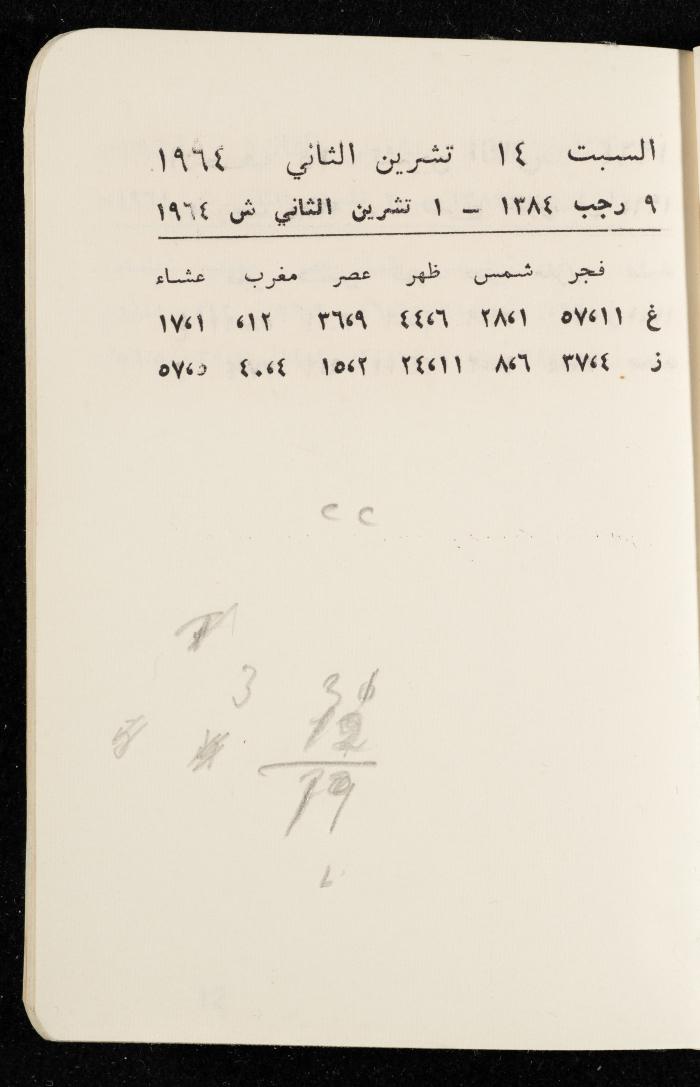 السبت ١٤ تشرين الثاني ١٩٦٤
٩ رجب ١٣٨٤ — ١ تشرين الثاني ش ١٩٦٤
فجر شمس ظهر عصر مغرب عشاء
غ ٥٧،١١ ٢٨،١ ٤٤،٦ ٣٦،٩ ٠١٢ ١٧،١
ز ٣٧،٤ ٨،٦ ٢٤،١١ ١٥،٢ ٤٠،٤ ٥٧،٥
c c
3
12
19